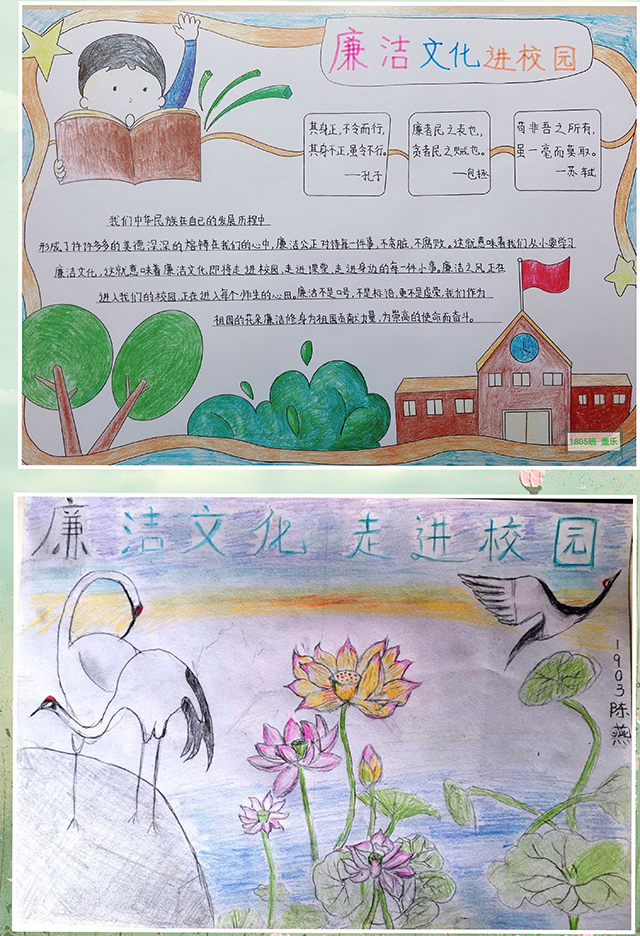 廉洁文化进校园
其身正,不令而行,
其身不正,虽令不行。
——孔子
廉者民之表也,
贪者民之贼也。
——包拯
苟非吾之所有,
虽一毫而莫取。
——苏轼
我们中华民族在自己的发展历程中
形成了许许多多的美德深深的熔铸在我们的心中,廉洁公正对待每一件事,不贪脏,不腐败。这就意味着我们从小要学习
廉洁文化,这就意味着廉洁文化即将走进校园,走进课堂,走进身边的每一件小事。廉洁之风正在
进入我们的校园,正在进入每个师生的心田。廉洁不是口号,不是标语,更不是虚荣,我们作为
祖国的花朵廉洁修身为祖国贡献力量,为崇高的使命而奋斗。
1805班 盖乐
廉洁文化走进校园
1903陈燕